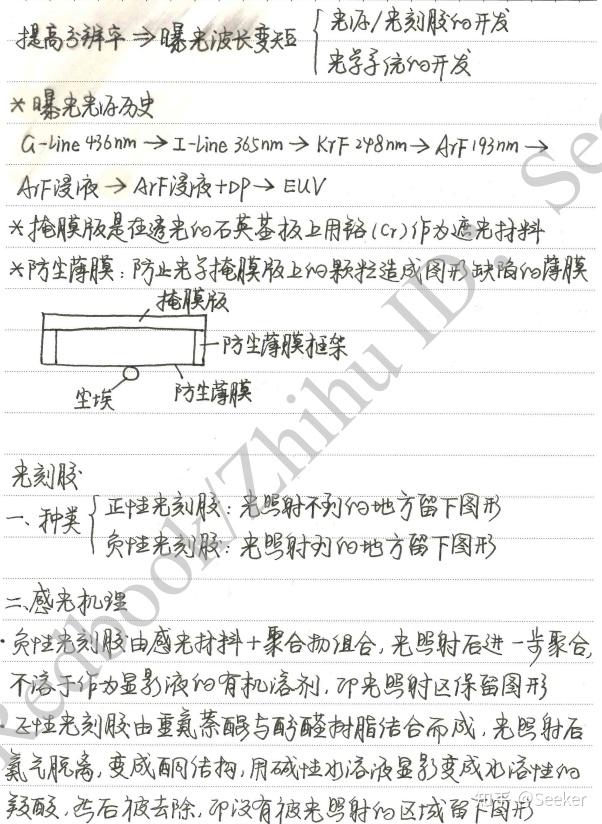 提高分辨率⇒曝光波长变短 { 光源/光刻胶的开发
光学系统的开发
*曝光光源历史
G-line 436nm→I-line 365nm→KrF 248nm→ArF 193nm→
ArF浸液→ArF浸液+DP→EUV
*掩膜版是在透光的石英基板上用铬(Cr)作为遮光材料
*防尘薄膜:防止光学掩膜版上的颗粒造成图形缺陷的薄膜
掩膜版
防尘薄膜框架
尘埃
防尘薄膜
光刻胶
一、种类 { 正性光刻胶:光照射不到的地方留下图形
负性光刻胶:光照射到的地方留下图形
二、感光机理
·负性光刻胶由感光材料+聚合物组合,光照射后进一步聚合,
不溶于作为显影液的有机溶剂,即光照射区保留图形
·正性光刻胶由重氮萘醌与酚醛树脂结合而成,光照射后
氮气脱离,变成酮结构,用碱性水溶液显影变成水溶性的
羧酸,然后被去除,即没有被光照射的区域留下图形
Redbook/Zhihu ID: See
知乎 @Seeker